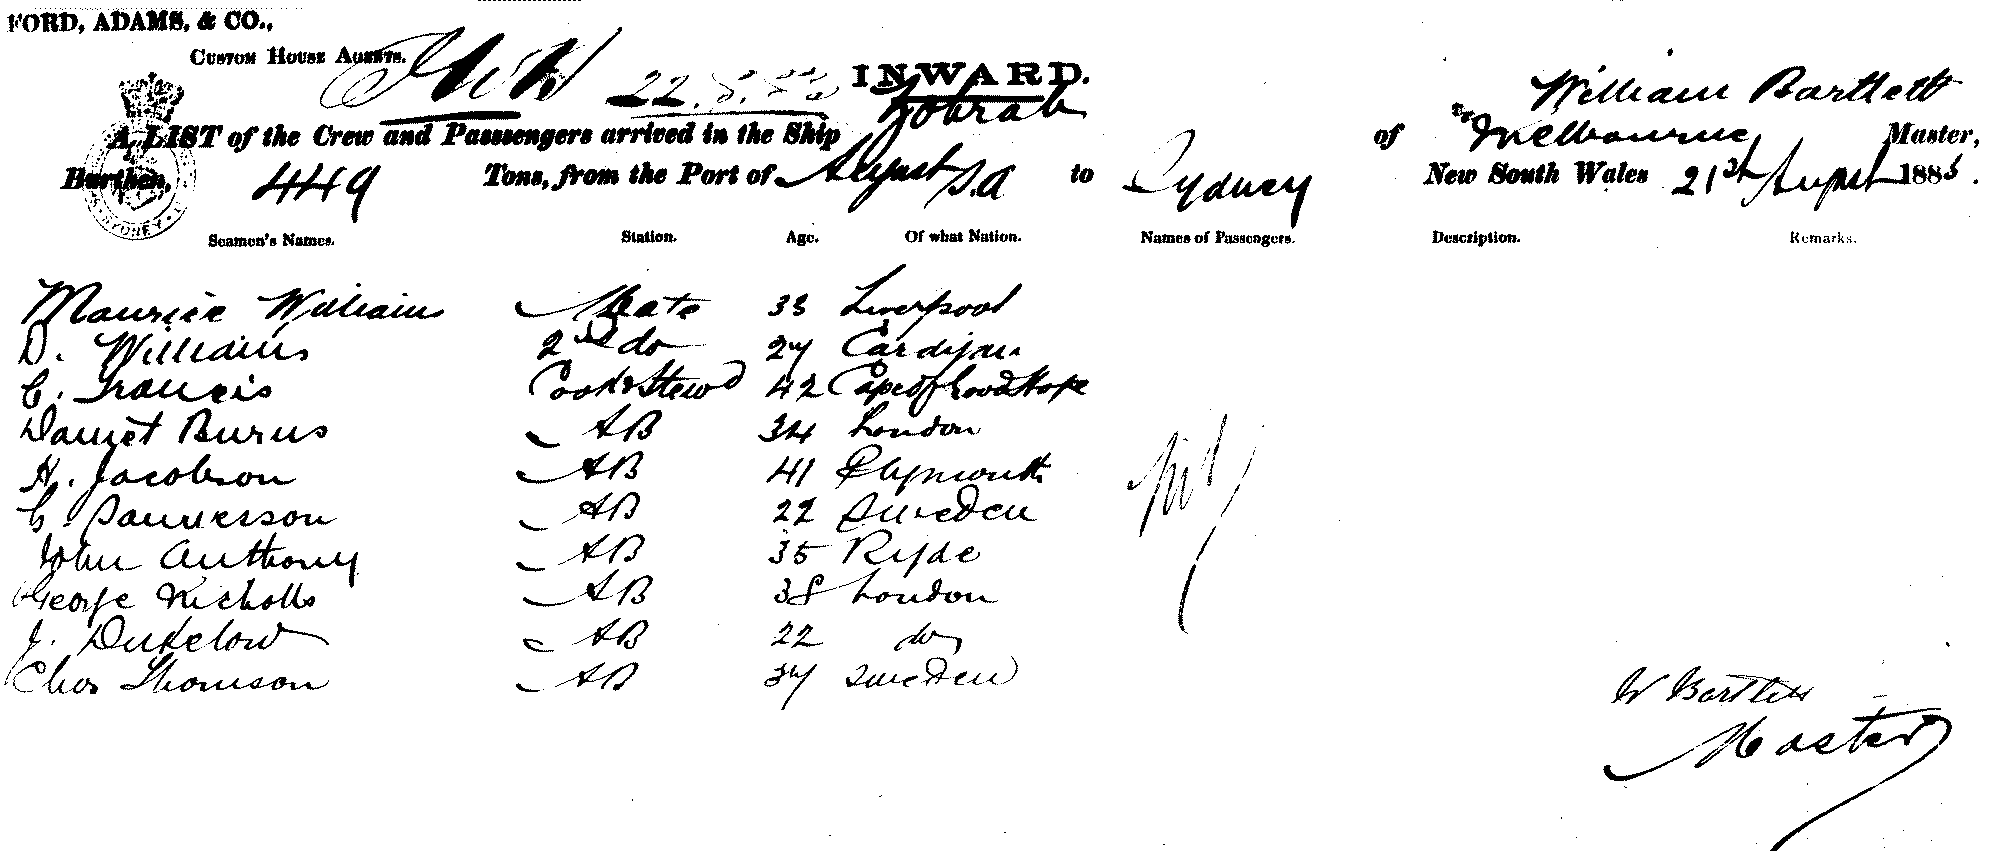 FORD, ADAMS, & CO.,
CUSTOM HOUSE AGENTS.
22.8.85
INWARD.
A LIST of the Crew and Passsengers arrived in the Ship Zohrab of Melbourne William Bartlett Master,
Burthen, 449 Tons, from the Port of August S.A to Sydney New South Wales 21st August 1885.
Seamen's Names. Station. Age. Of what Nation. Names of Passengers. Description. Remarks.
Maurice William Mate 33 Liverpool
D. Williams 2nd do 27 Cardigan
C. Francis Cook & Stewd 42 Cape of Good Hope
Daniel Burns AB 34 London
H. Jacobson AB 41 Plymouth
AB 22 Sweden
John Anthony AB 35 Ryde
George Nicholls AB 38 London
J. Dukelow AB 22 do
Chas Thomson AB 37 Sweden
Nil
W Bartlett
Master